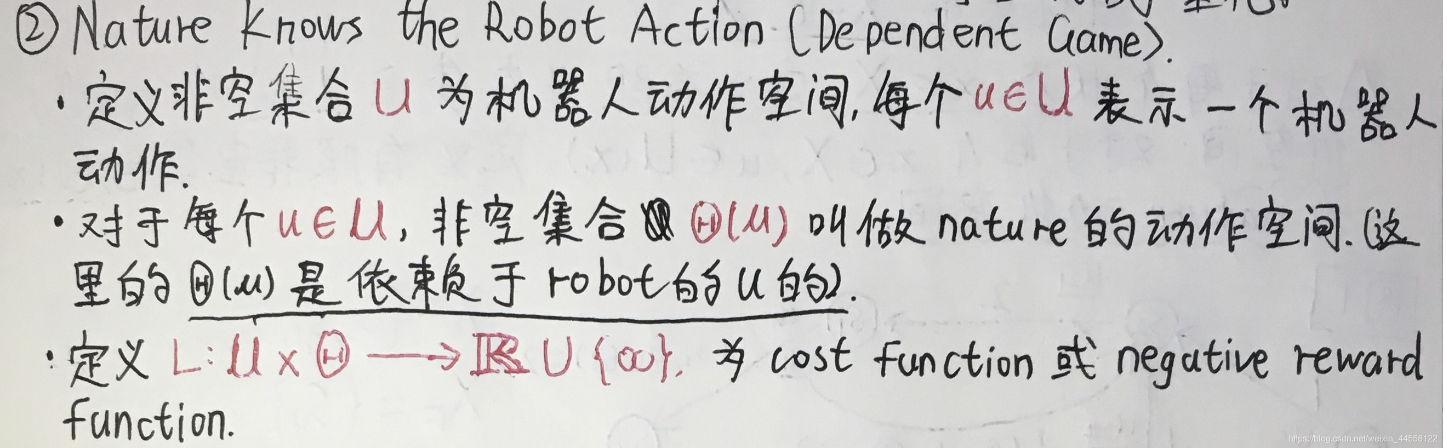 ② Nature Knows the Robot Action (Dependent Game).
· 定义非空集合 U 为机器人动作空间, 每个 u∈U 表示一个机器人
动作.
· 对于每个 u∈U, 非空集合 Θ(u) 叫做 nature 的动作空间. (这
里的 Θ(u) 是依赖于 robot 的 u 的).
· 定义 L: U × Θ → ℝ ∪ {∞}. 为 cost function 或 negative reward
function.